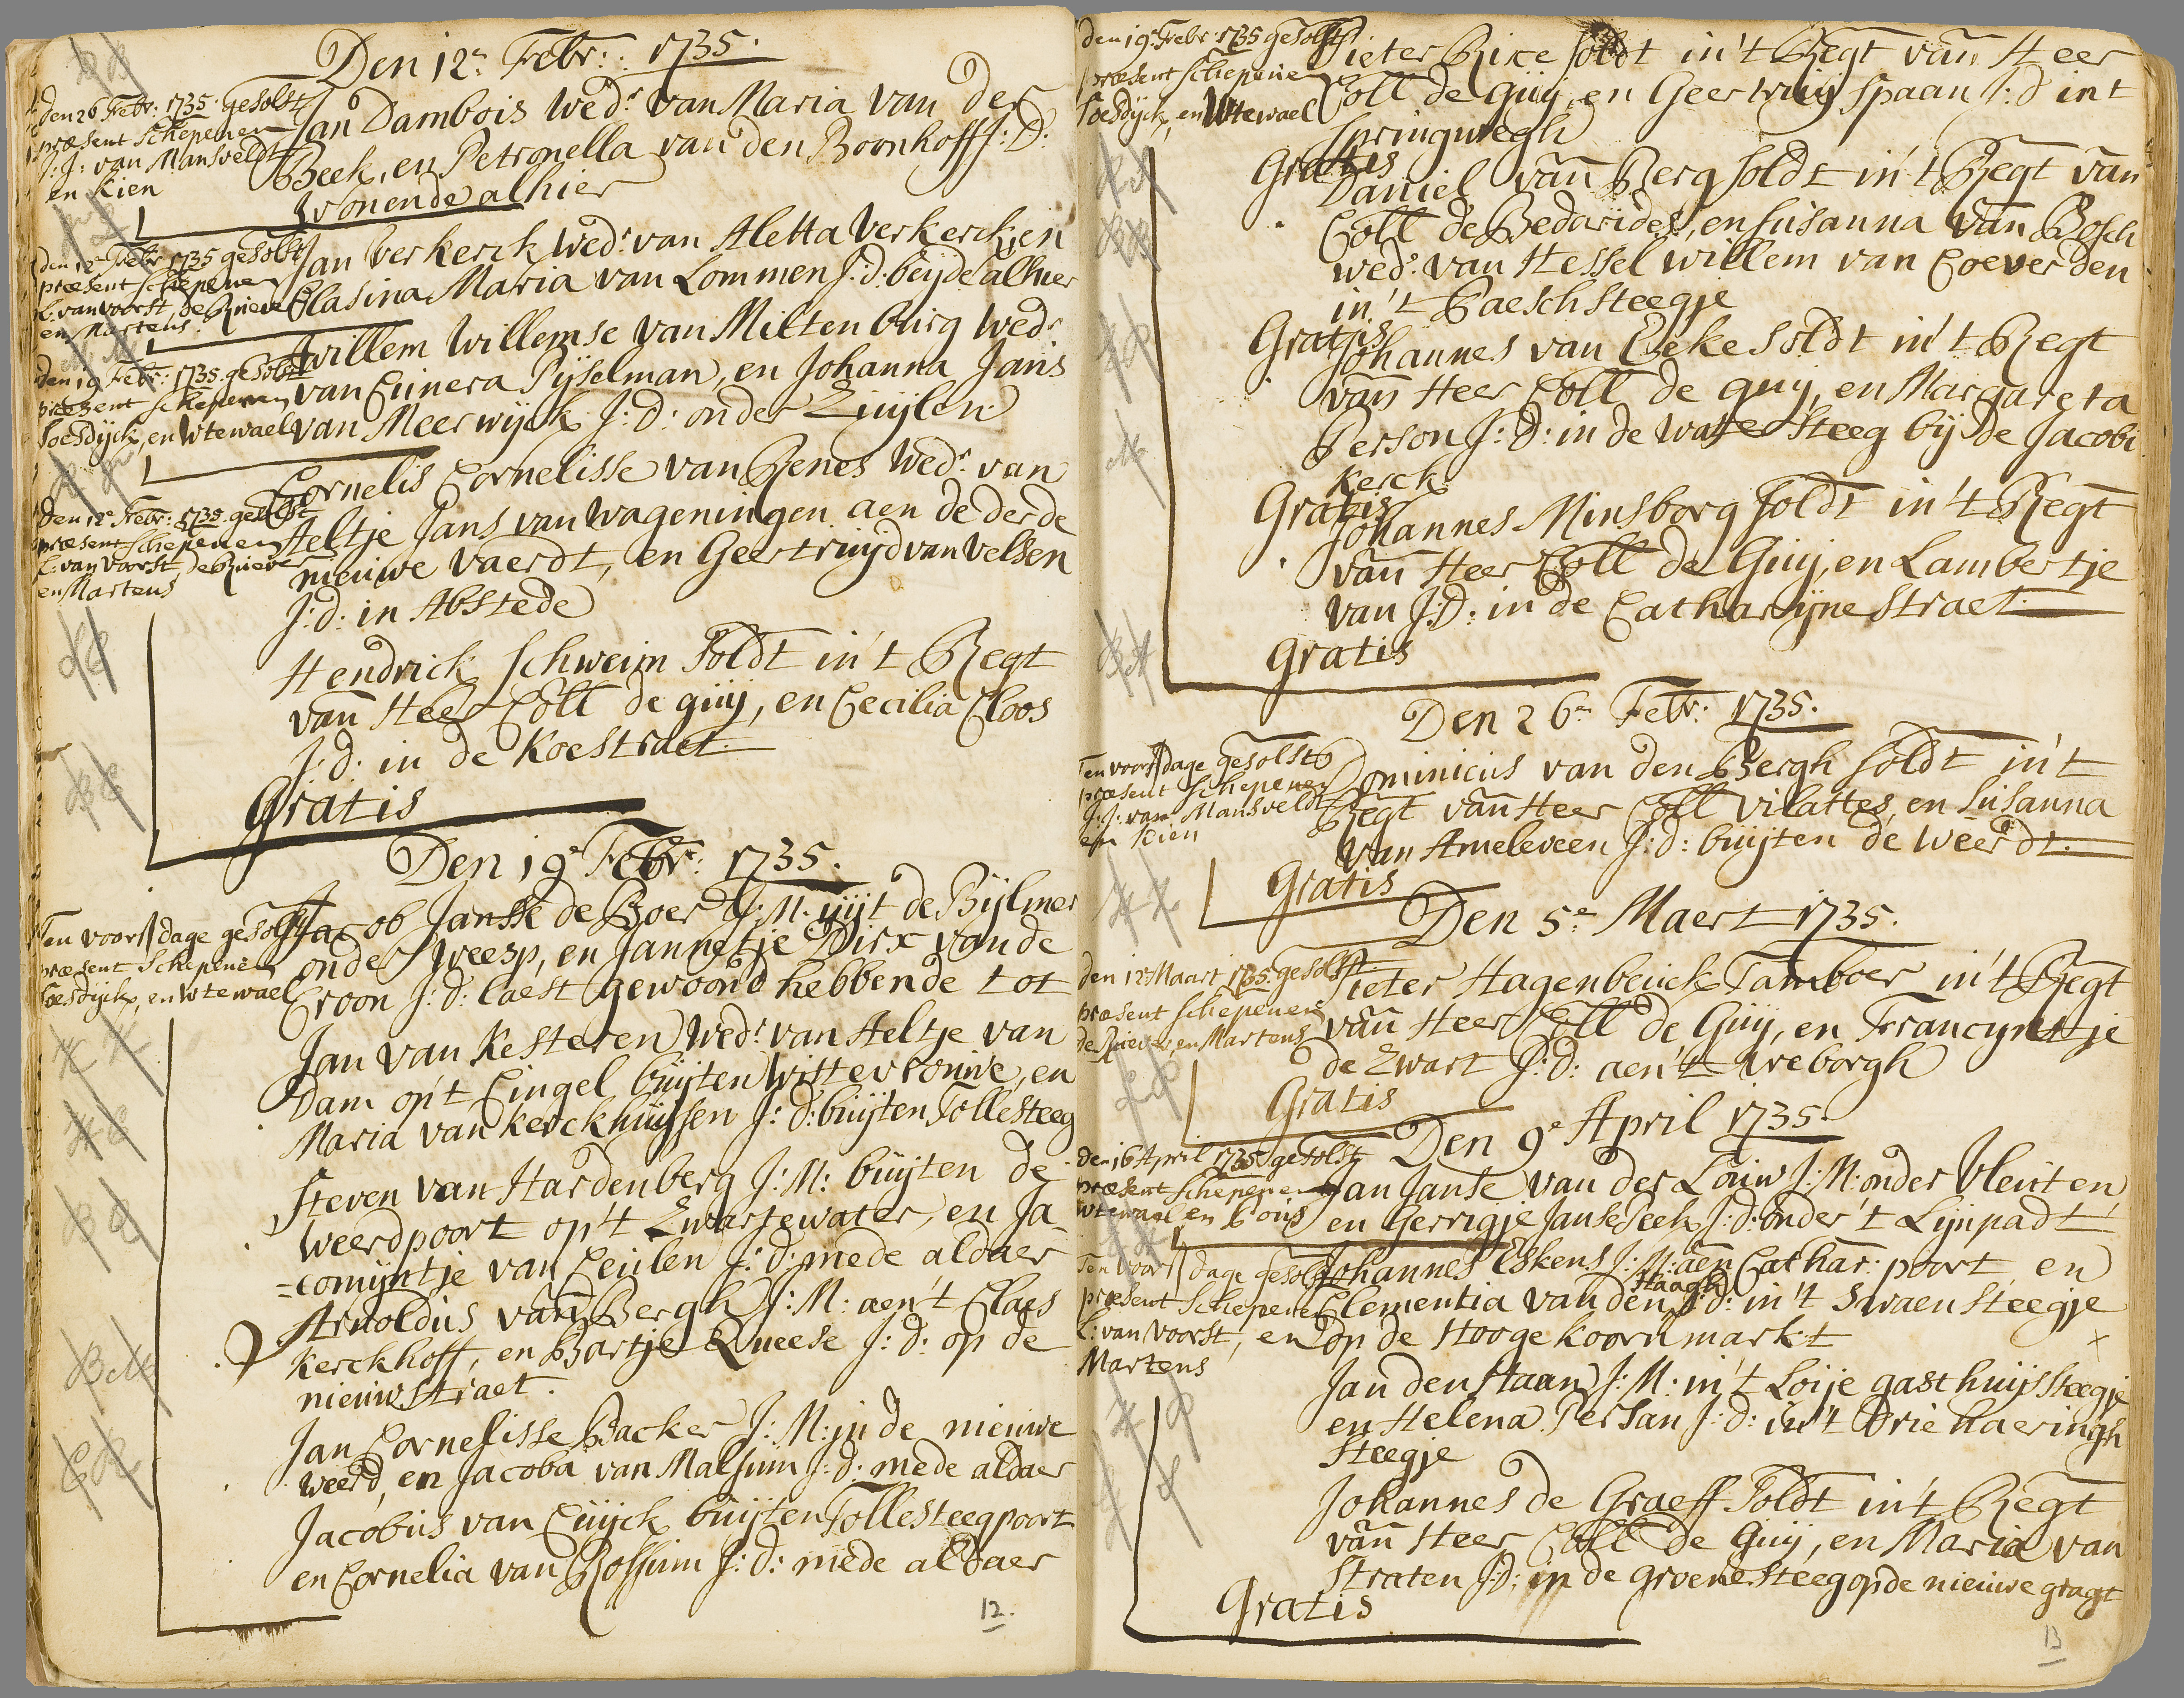 Den 12e. Febr: 1735.
den 26 Febr: 1735. gesolst
præsent Schepenen
J: J: van Mansveldt
en Kien
Jan Dambois wedr. van Maria van der
Beek, en Petronella van den Boonhoff J: D:
wonende alhier
den 12e Febr 1735 gesolst
præsent schepenen
L: van voorst, de Ruever
en Martens
Jan verkerck wedr. van Aletta verkerck, en
Clasina Maria van Lommen J: d: beijde alhier
den 19 Febr: 1735. gesolst
præsent schepenen
Soesdijck, en Wtewael
Willem Willemse van Miltenburg wedr.
van Cunera Pijselman, en Johanna Jans
van Meerwijck J: D: onder Zuijlen
den 12e Febr: 1735. gesolst
præsent schepenen
L: van voorst de Ruever
en Martens
Cornelis Cornelisse van Renes wedr. van
Aeltje Jans van wageningen aen de derde
nieuwe vaerdt, en Geertruijd van velsen
J: d: in Abstede
Hendrick schweim Soldt in 't Regt
van Heer Coll de guij, en Cecilia Cloos
J: d: in de Koestraet.
Gratis
Den 19e Febr: 1735.
Ten voors dage gesolst
præsent Schepenen
Soesdijck, en Wtewael
Jacob Jansse de Boer J: M. uijt de Bijlmer
onder weesp, en Jannetje Dirx van de
Croon J: d: laest gewoond hebbende tot
Jan van Kesteren wedr. van Aeltje van
Dam op't Cingel buijten wittevrouwe, en
Maria van Kerckhuijsen J: d: buijten Tollesteeg
Steven van Hardenberg J: M: buijten de
weerdpoort op't Zwartewater, en Ja-
=comijntje van Ceulen J: d: mede aldaer
Arnoldus van Bergh J: M: aen 't Claes
Kerckhoff, en Bartje Queese J: d: op de
nieuwstraet.
Jan Cornelisse Backer J: M: in de nieuwe
weerd, en Jacoba van Malsum J: d: mede aldaer
Jacobus van Cuijck buijten Tollesteegpoort
en Cornelia van Rossum J: d: mede aldaer
12.
den 19e Febr: 1735 gesolst
præsent schepenen
Soesdijck, en Wtewael
Pieter Rixe soldt in't Regt van Heer
Coll de guij, en Geertruij Spaan J: d in 't
Springweegh
Gratis
Daniel van Berg soldt in 't Regt van
Coll de Bedarides, en Susanna van Bosch
wede. van Hessel willem van Coeverden
in 't Baeschsteegje
Gratis
Johannes van Eeke soldt in 't Regt
van Heer Coll de guij, en Margareta
Person J: D: in de waterSteeg bij de Jacobi
Kerck
Gratis
Johannes Minsborg soldt in 't Regt
van Heer Coll de Guij, en Lambertje
van J: D: in de Catharijnestraet.
Gratis
Den 26e Febr: 1735.
Ten voors dage gesolst
præsent schepenen
J: J: van Mansveldt
en Kien
Dominicus van den Bergh soldt in 't
Regt van Heer Coll vilattes, en Susanna
van Ameleveen J: d: buijten de weerdt.
Gratis
Den 5e Maert 1735.
den 12 Maart 1735 gesolst
præsent schepenen
de Ruever, en Martens
Pieter Hagenbeuck Tamboer in 't Regt
van Heer Coll de Guij, en Francijntje
de Zwart J: d: aen 't Vreborgh
Gratis
Den 9e April 1735.
den 16 April 1735 gesolst
præsent schepenen
Wtewael en Bois
Jan Janse van der Louw J: M: onder Vleuten
en Gerrigje Janse Peek J: d: onder 't Lijnpadt
Ten voors dage gesolst
præsent Schepenen
L: van Voorst, en
Martens
Johannes Eskens J: M: aen Cathar: poort, en
Clementia van den Haagh J: d: in 't Swaensteegje
op de Hooge koornmarkt
Jan den Haan J: M: in 't Loije gasthuijssteegje
en Helena Persan J: d: in 't Drie haeringh
steegje
Johannes de Graeff Soldt in 't Regt
van Heer Coll de Guij, en Maria van
Straten J: D: in de groenesteeg op de nieuwe gragt
Gratis
13